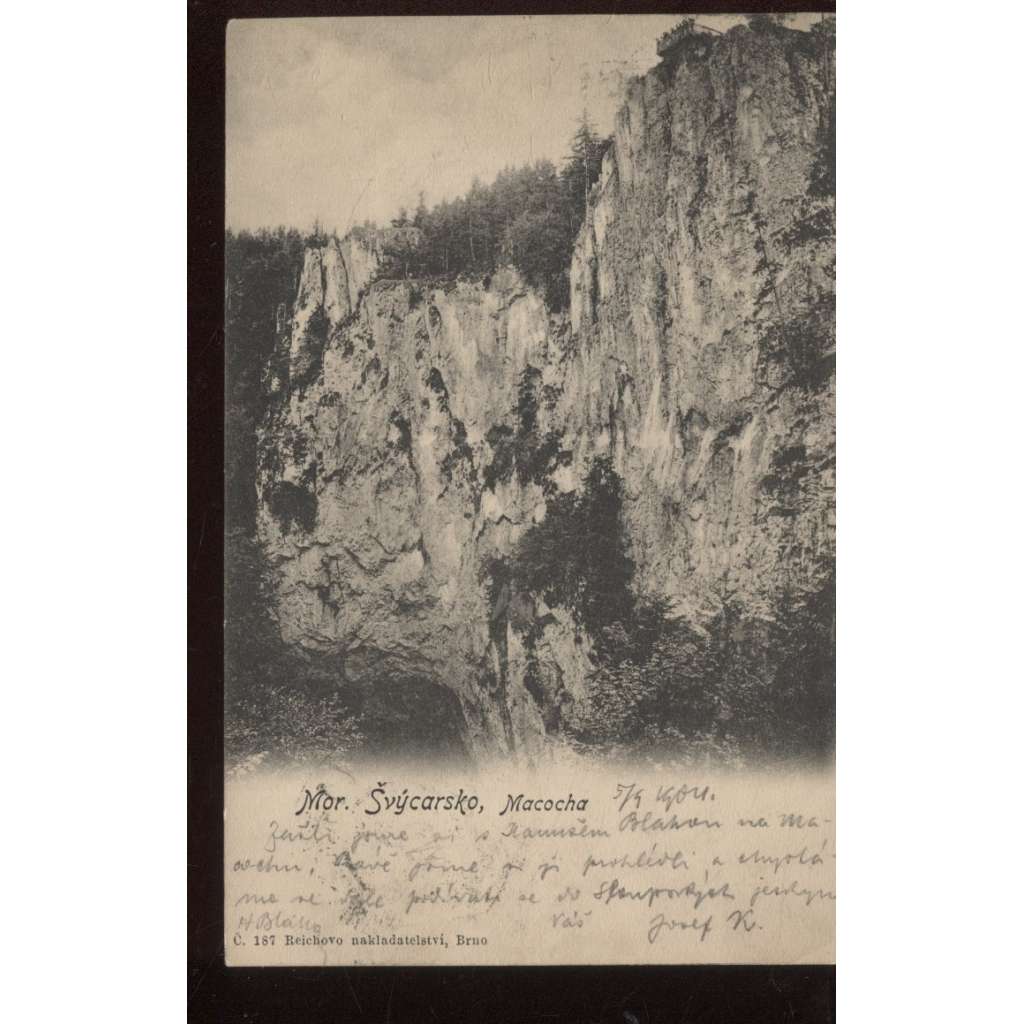 Mor. Švýcarsko, Macocha 5/9 1904.
Zašli jsme si s Blahou na Ma-
cochu, Právě jsme si ji prohlédli a chystá-
me se dále podívati se do Sloupských jeskyň
H Bláha Váš Josef K.
Č. 187 Reichovo nakladatelství, Brno